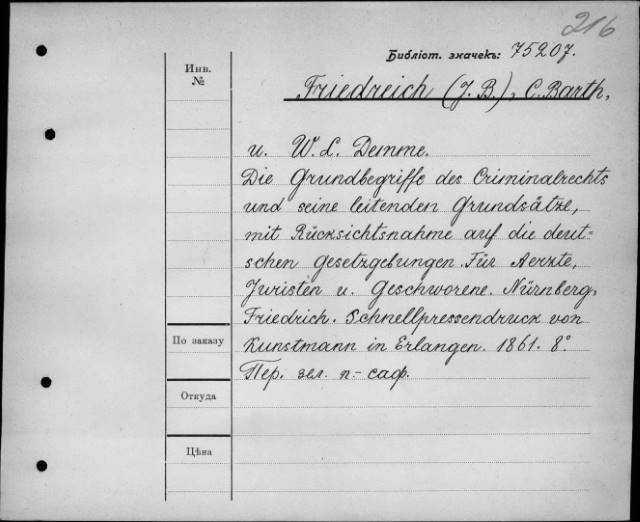 216
Библіот. значекъ: 75207.
Инв.
№
Friedreich (J. B.), C. Barth,
u. W. L. Demme.
Die Grundbegriffe des Criminalrechts
und seine leitenden Grundsätze,
mit Rücksichtsnahme auf die deut-
schen Gesetzgebungen. Für Aerzte,
Juristen u. Geschworene. Nürnberg,
Friedrich. Schnellpressendruck von
Kunstmann in Erlangen. 1861. 8°
Пер. зел. п.-саф.
По заказу
Откуда
Цѣна